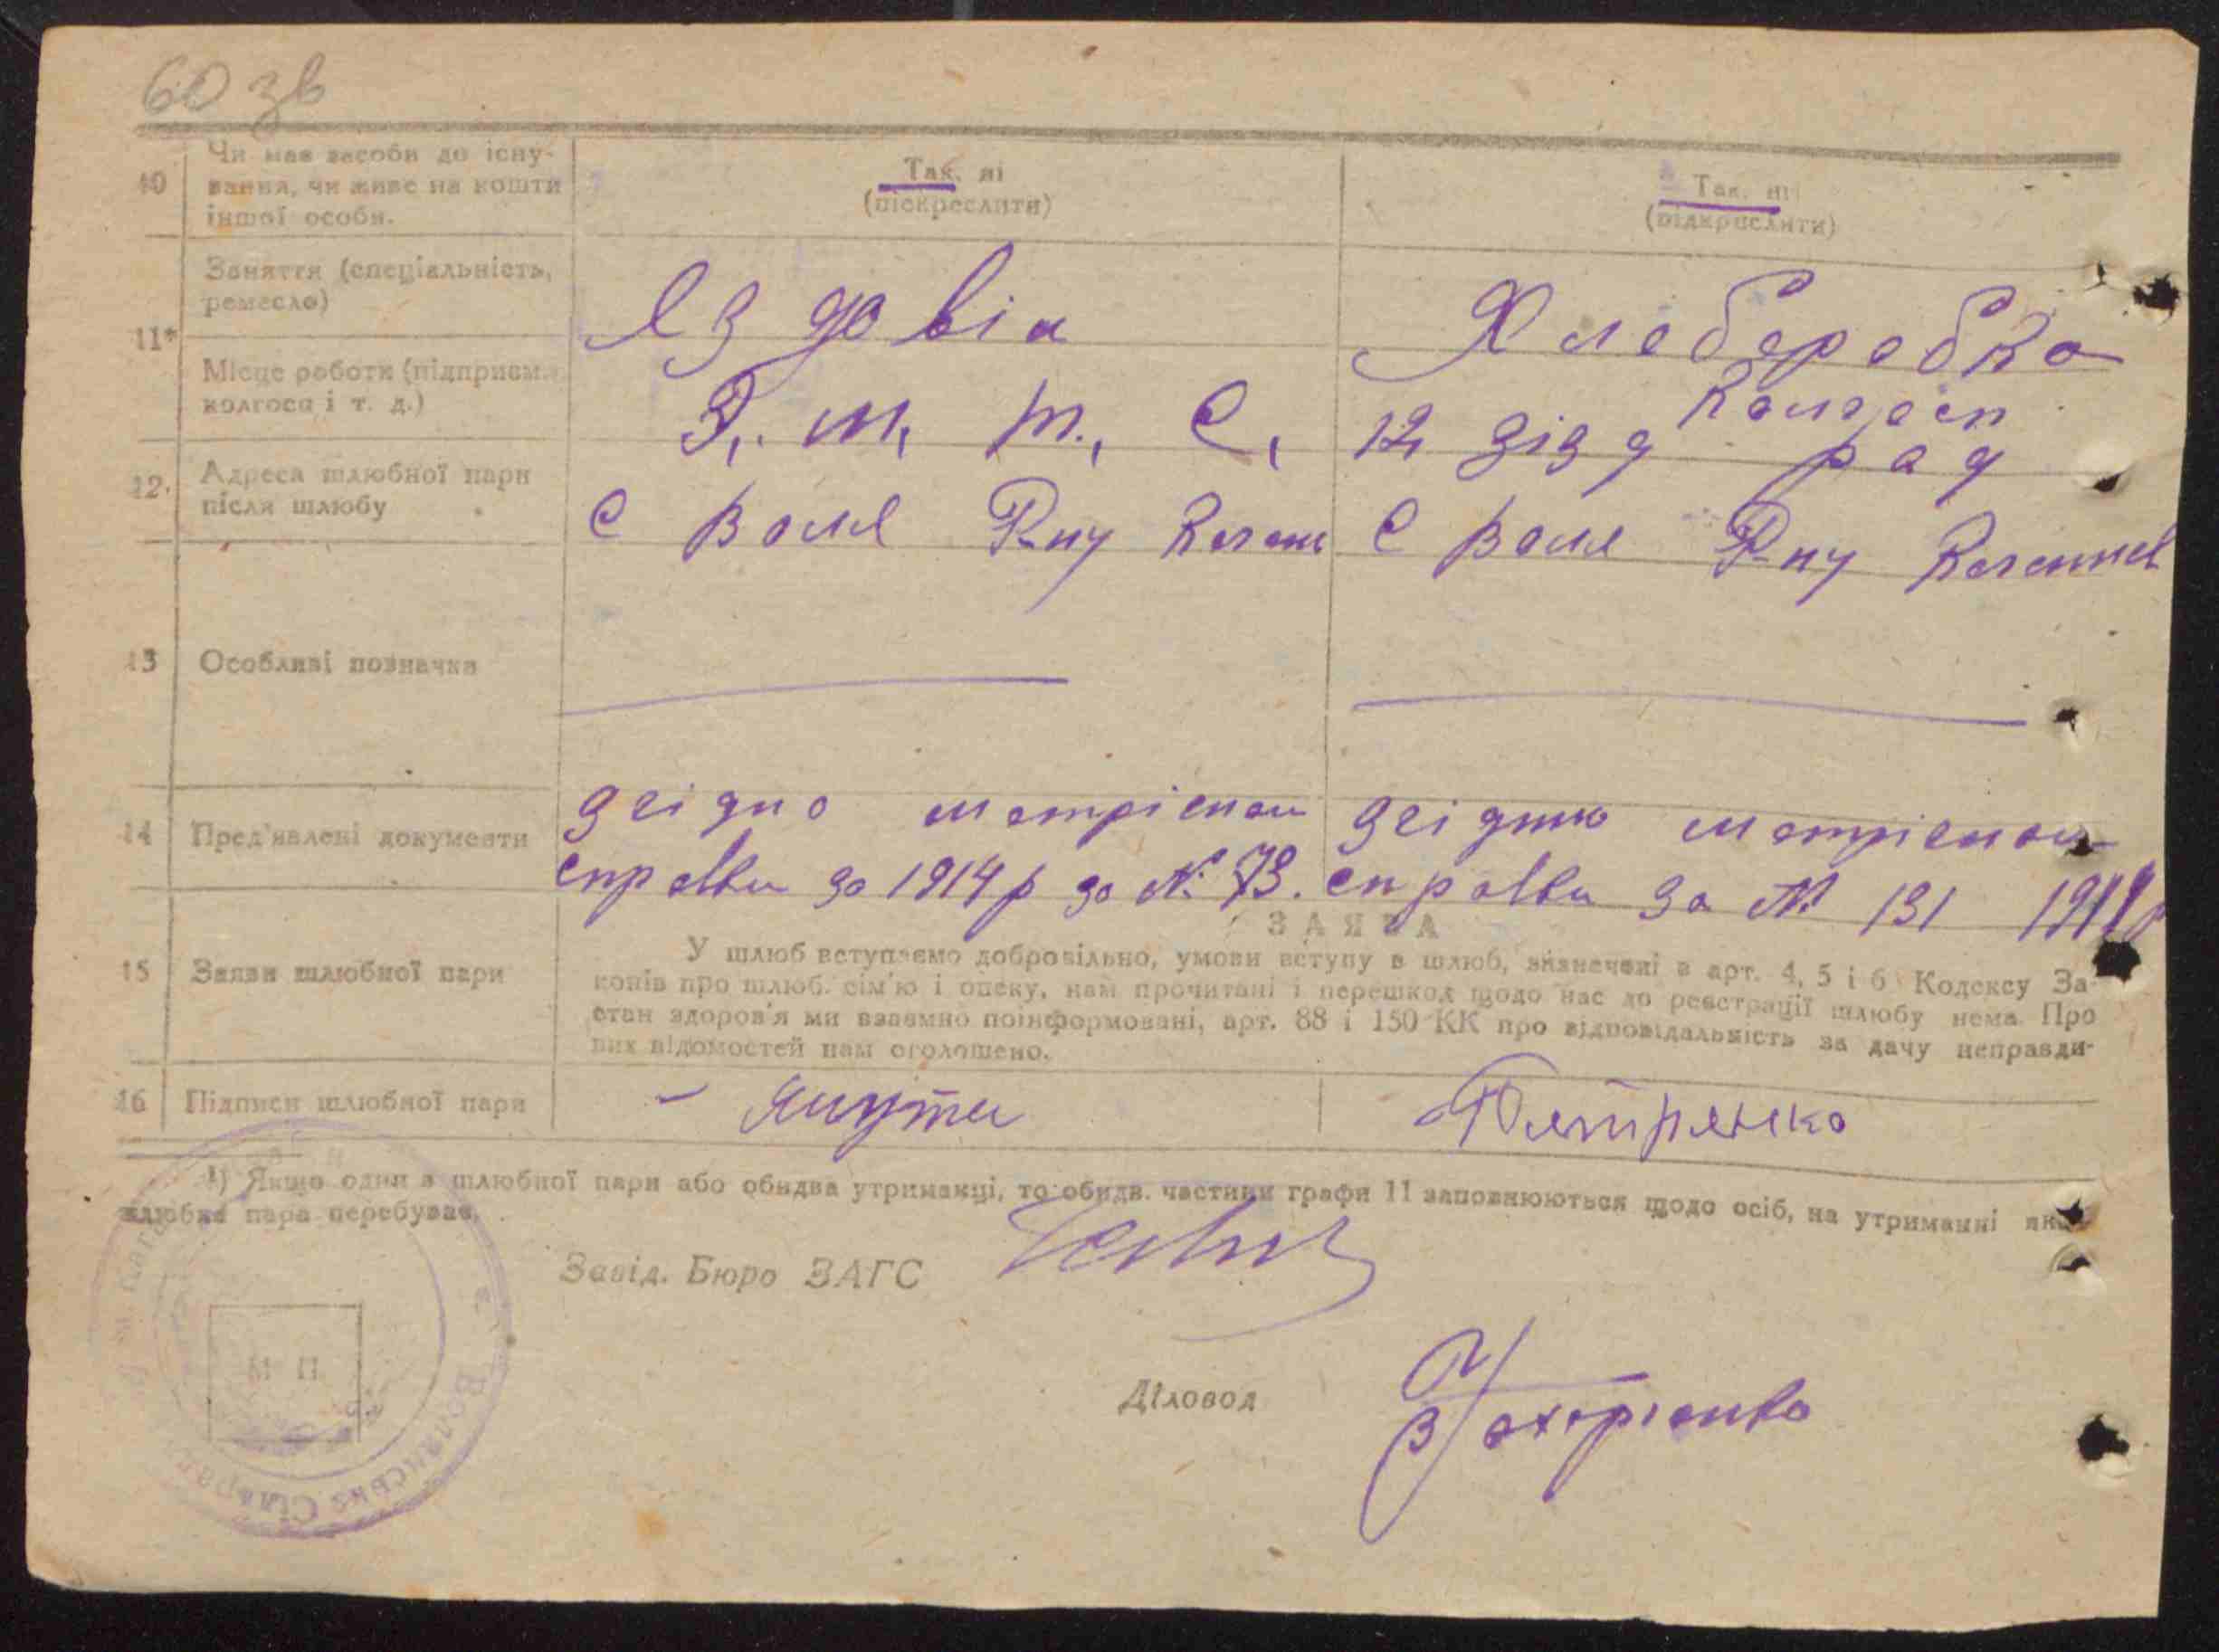 60 зв
10
Чи має засоби до існу-
вання, чи живе на кошти
іншої особи.
Так, ні
(підкреслити)
Так, ні
(підкреслити)
11*
Заняття (спеціальність,
ремесло)
Їздовій
Хлеборобка
Місце роботи (підприєм.
колгоса і т. д.)
З. М. Т. С.
Колгосп
12 зізд рад
12.
Адреса шлюбної пари
після шлюбу
С Воля Р-ну
С Воля Р-ну
13
Особливі позначки
14
Пред'явлені документи
згідно
справки за 1914 р за № 73.
згідно
справки за № 131
15
Заяви шлюбної пари
ЗАЯВА
У шлюб вступаємо добровільно, умови вступу в шлюб, зазначені в арт. 4, 5 і 6 Кодексу За-
конів про шлюб. сім'ю і опеку, нам прочитані і перешкод щодо нас до реєстрації шлюбу нема. Про
стан здоров'я ми взаємно поінформовані, арт. 88 і 150 КК про відповідальність за дачу неправди-
вих відомостей нам оголошено.
16
Підписи шлюбної пари
Петренко
1) Якщо один з шлюбної пари або обидва утриманці, то обидв. частини графи 11 заповнюються щодо осіб, на утриманні яких
шлюбна пара перебуває.
Завід. Бюро ЗАГС
М П
Волянська Сільрада
Діловод
Захарченко